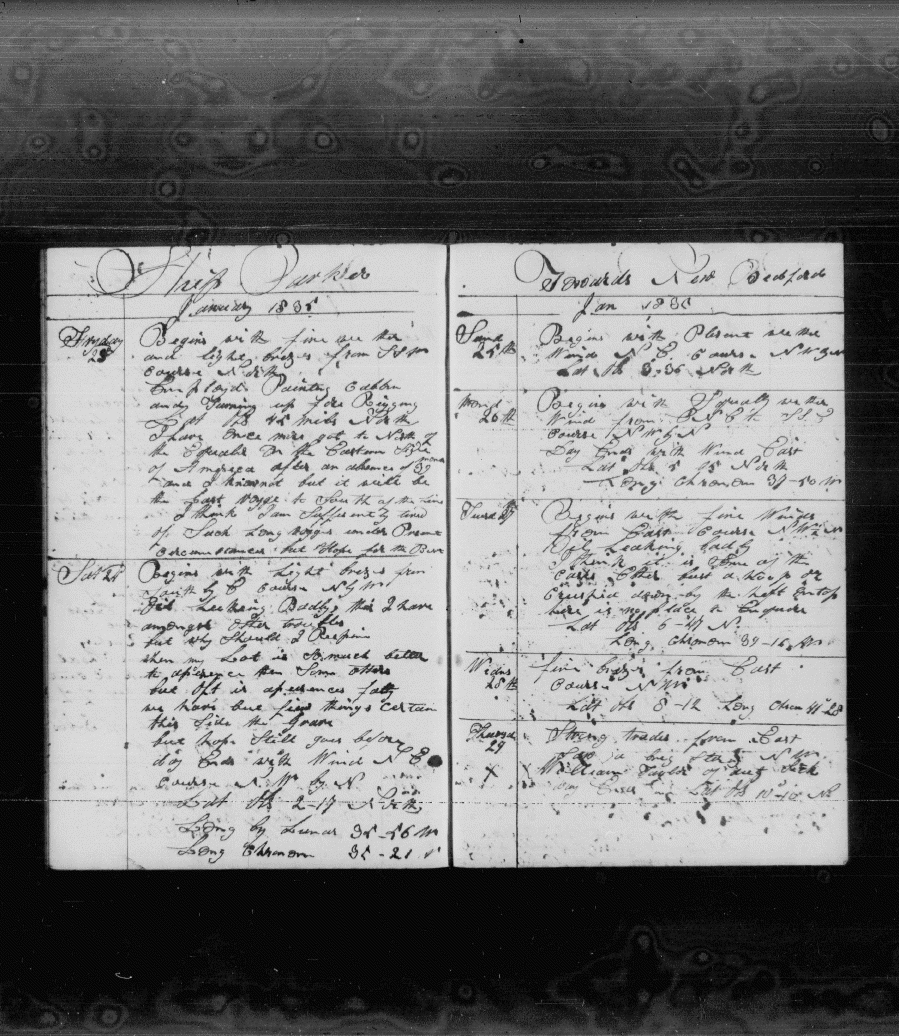 Ship Parker
January 1835
Fryday
23
Begins with fine wether
and light brezes from SSW
Course North
Employd Painting Cabben
and Turning up fore Rigging
Lat Obs 45 miles North
I have once more got to North of
the Equater On the Eastern Side
of Amereca after an absence of 39 mons
and I know not but it will be
the Last voyge to South of the Line
I think I am Suffisently tired
of Such Long voyges under Present
Circumstances but Hope for the Best
Sat 24
Begins with Light brezes from
South by E Course N by W
Leeking Badly this I have
amongst other troubles
but why Should I Reepine
when my Lot is So much better
to apearence then Some others
but Oft is apearences falty
we have but few things certain
this Side the Grave
but hope Still goes before
day Ends with Wind N E
Course N W by N
Lat Obs 2-17 North
Long by Lunar 35-56 W
Long Chronom 35-21
Towards New Bedford
Jan 1835
Sund
25th
Begins with Plesent wether
Wind N E Course N W
Lat Obs 3-36 North
Mond
26th
Begins with Squally wether
Wind from ENE to SSE
Course N W by N
Day Ends with Wind East
Lat Obs 5 05 North
Long Chronom 37-50 W
Tuesd 27
Begins with fine Winds
from East Course N W
Oyl Leaking badly
I think it is Some of the
Casks Ether bust a Hoop or
Crushid down by the heft on top
here is no place to Enquire
Lat Obs 6-47 N
Long Chronom 39-16 W
Wedns
28th
fine brezes from East
Course N W
Latt Obs 8-12 Long Chron 41-28
Thursd
29
Strong trades from East
Saw a brig Steering N W
X X William Taylor of
Lat Obs 10-10 N